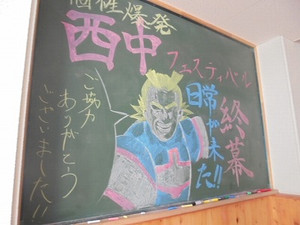 個性爆発
西中
フェスティバル
日常が来た!!
終幕
ご協力
ありがとう
ございました!!